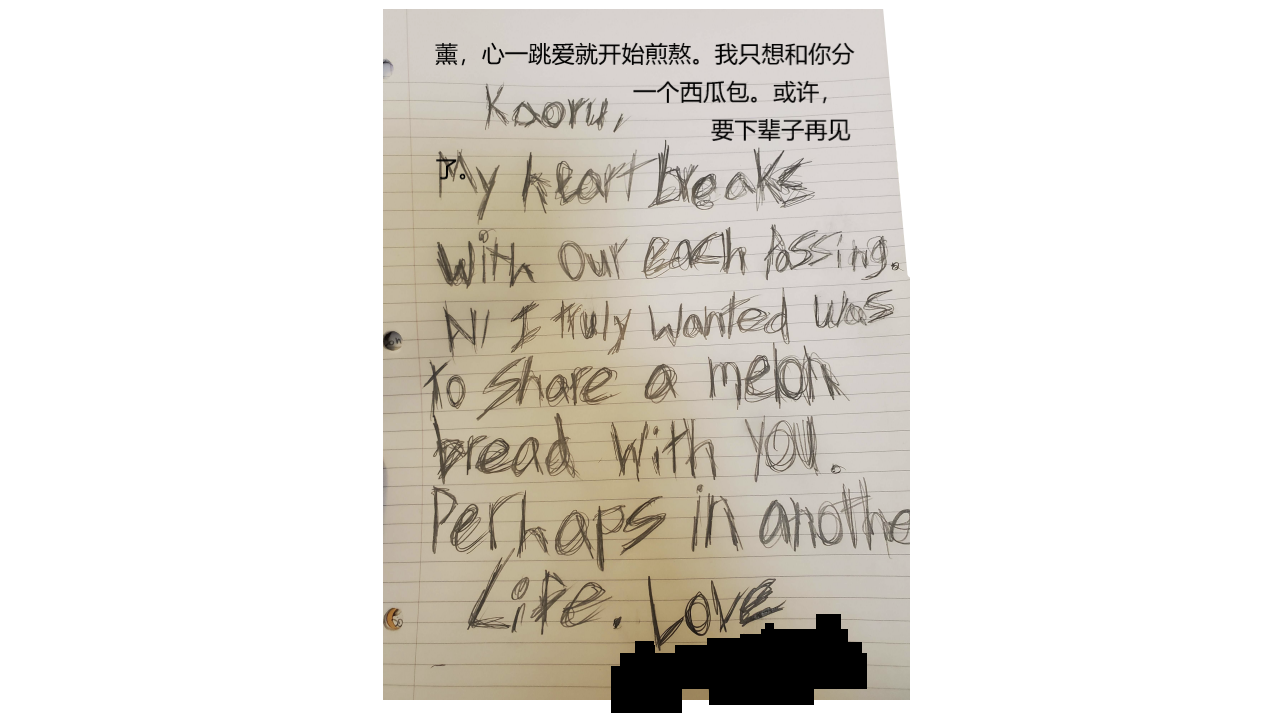 薰，心一跳爱就开始煎熬。我只想和你分
一个西瓜包。或许，
要下辈子再见
了。
Kaoru,
My heart breaks
with our each passing.
All I truly wanted was
to share a melon
bread with you.
Perhaps in anothe
Life. Love